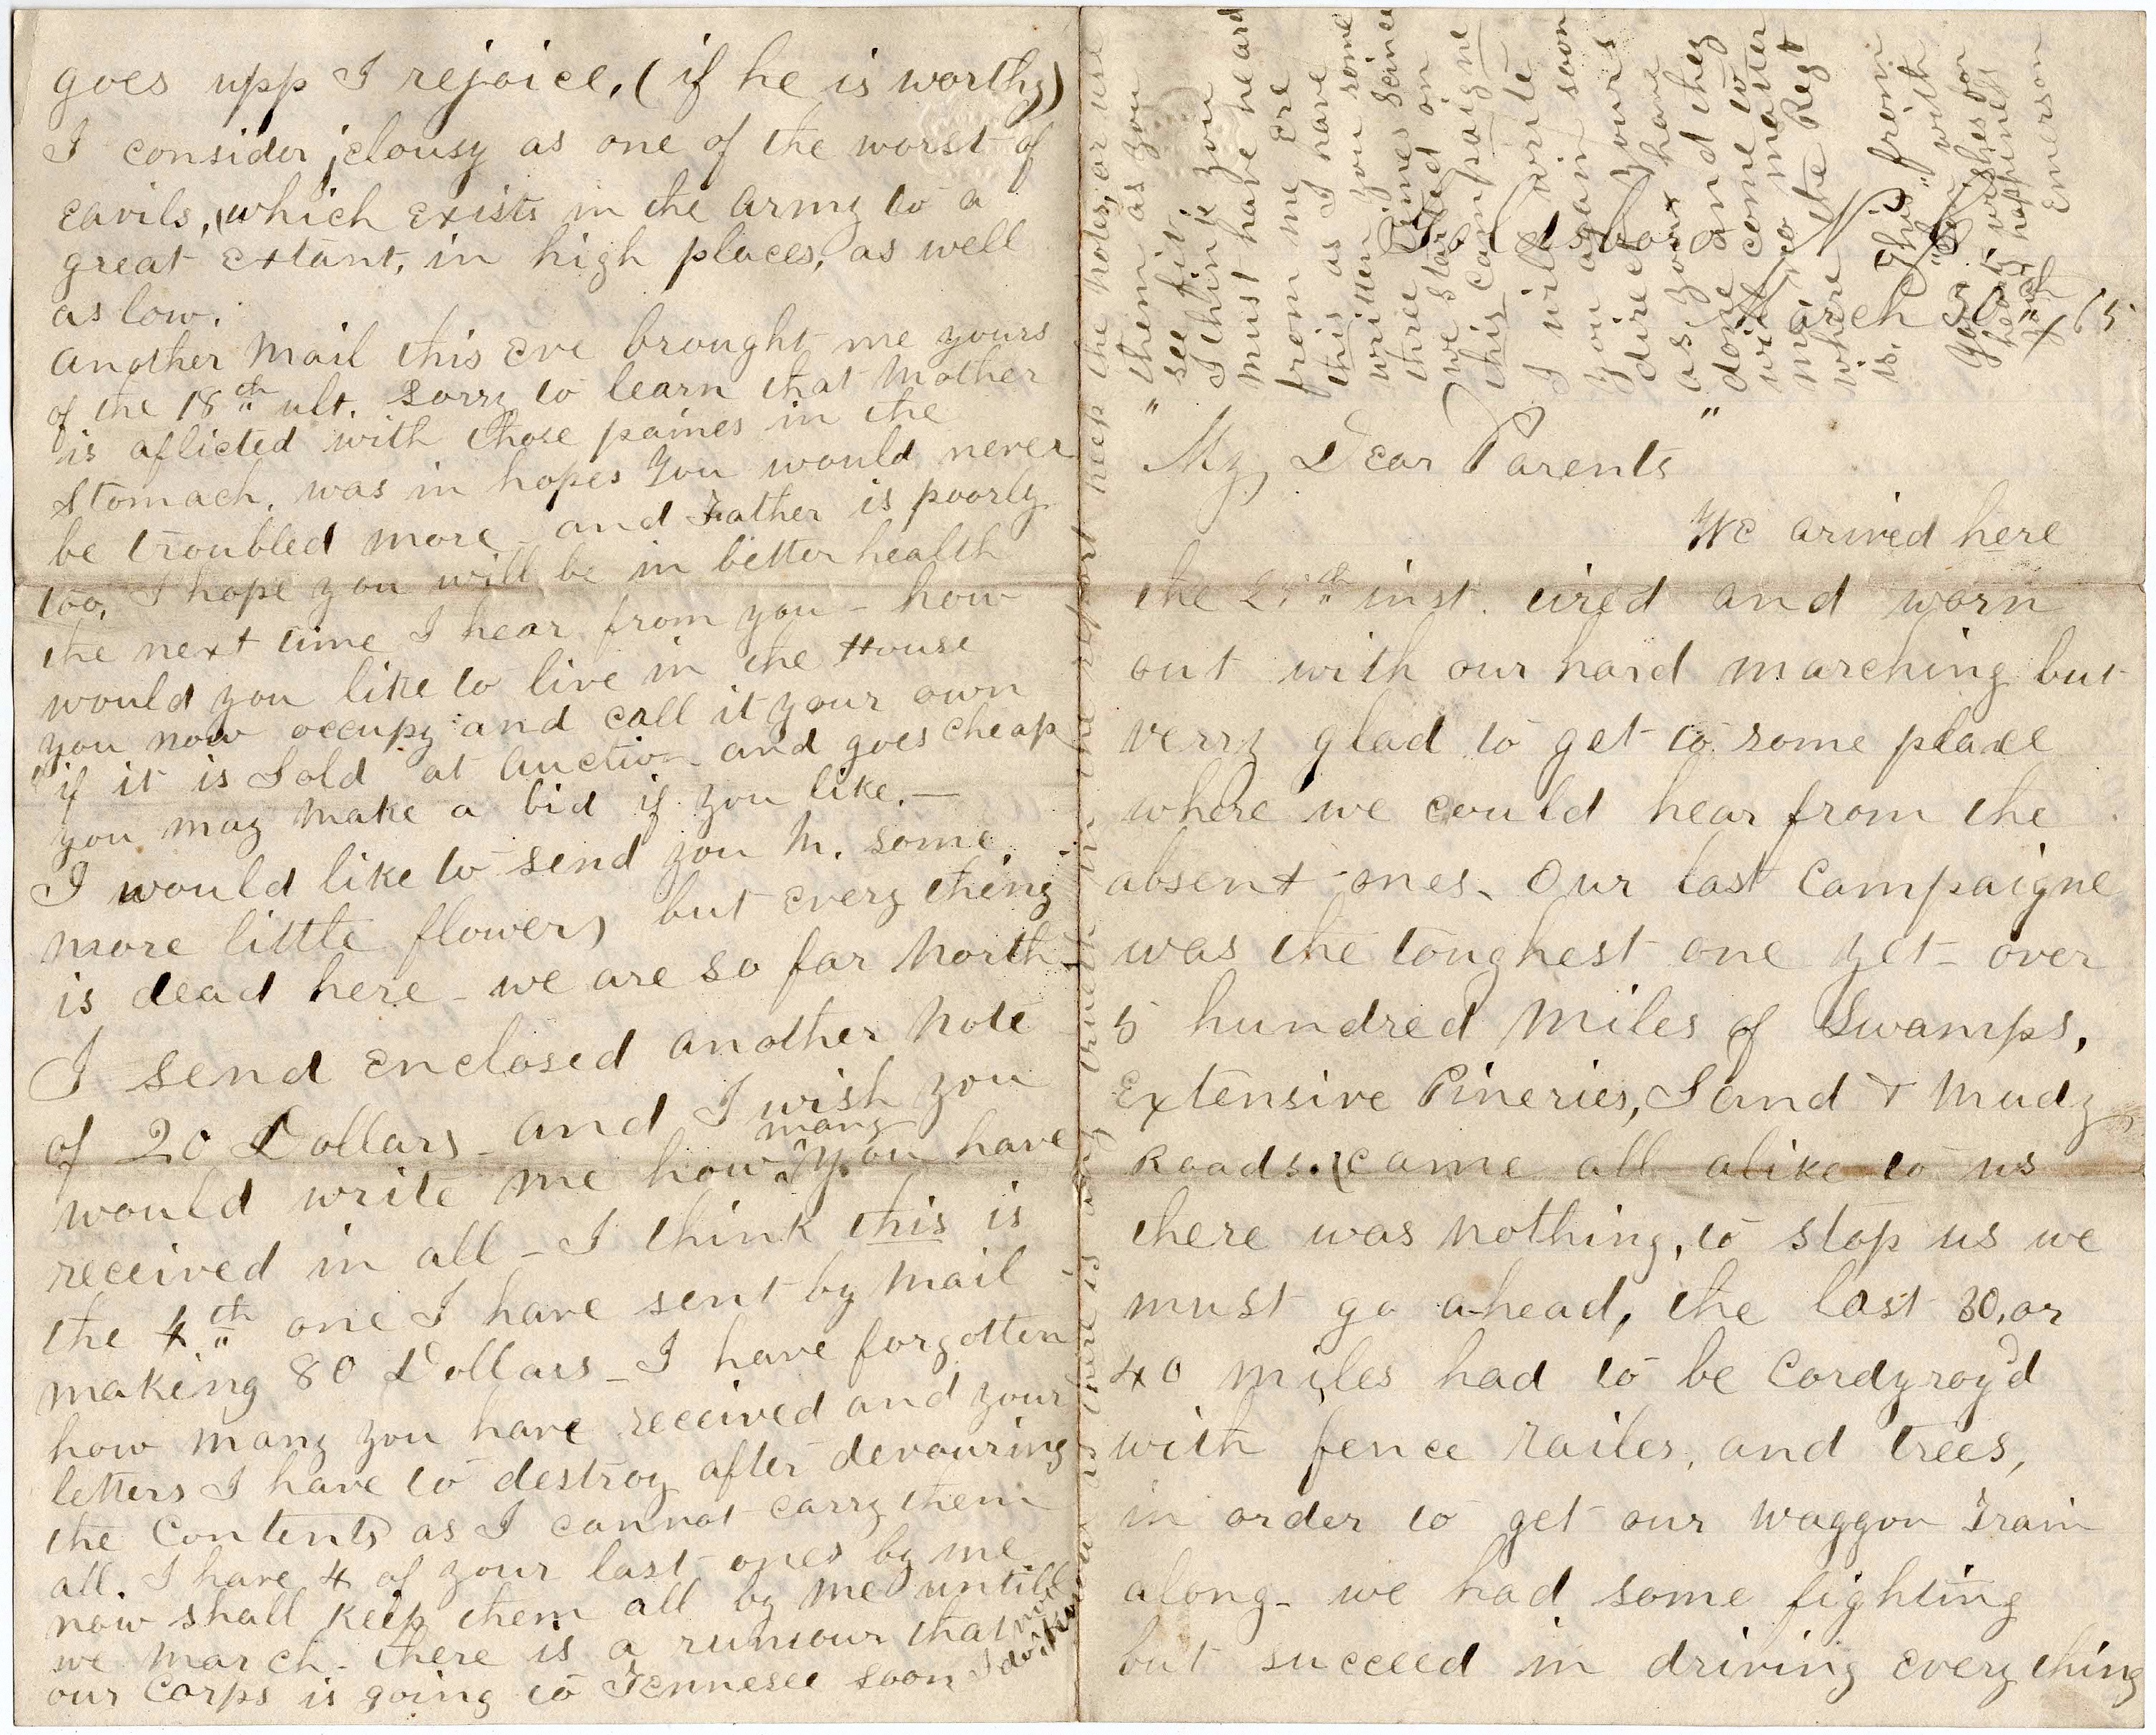 Goldsboro N. C.
March 30th / 65
"My Dear Parents"
We arived here
the 2 th inst. tired and worn
out with our hard marching but
verry glad to get to some place
where we could hear from the
absent ones. Our last Campaigne
was the toughest one yet - over
5 hundred Miles of Swamps,
Extensive Pineries, Sand & Mudy
Roads. (came all alike to us
there was nothing, to stop us we
must go ahead, the last 30, or
40 miles had to be Cordyroy'd
with fence railes, and trees,
in order to get our Waggon Train
along - we had some fighting
but succeed in driving every thing
goes upp I rejoice, (if he is worthy)
I consider jelousy as one of the worst of
eavils, (which exists in the Army to a
great extant, in high places, as well
as low.
Another Mail this eve brought me yours
of the 18th ult. Sorry to learn that Mother
is aflicted with those paines in the
Stomach. was in hopes You would never
be troubled more - and Father is poorly
too, I hope you will be in better health
the next time I hear from you - how
would you like to live in the House
you now occupy and call it your own
"if it is Sold at Auction and goes cheap
you may make a bid if you like. —
I would like to send you M. some
more little flowers but every thing
is dead here - we are so far North
I send enclosed another Note
of 20 Dollars - and I wish you
would write me how many you have
received in all - I think this is
the 4th one I have sent by Mail
making 80 Dollars - I have forgotten
how many you have received and your
letters I have to destroy after devouring
the Contents as I cannot carry them
all. I have 4 of your last ones by me
now shall keep them all by me untill
we march - there is a rumour that
our Corps is going to Tennesee soon I don't
know as there is any truth in the report keep the Notes, or use
them as you
see fit.
I think you
must have heard
from me ere
this as I have
written you some
three times seince
we started on
this campaigne
I will write
you again soon
direct yours
as you have
done and they
will come to
me no matter
where the Regt
is. This from
your " " with
hearty wishes for
your happiness
Emerson